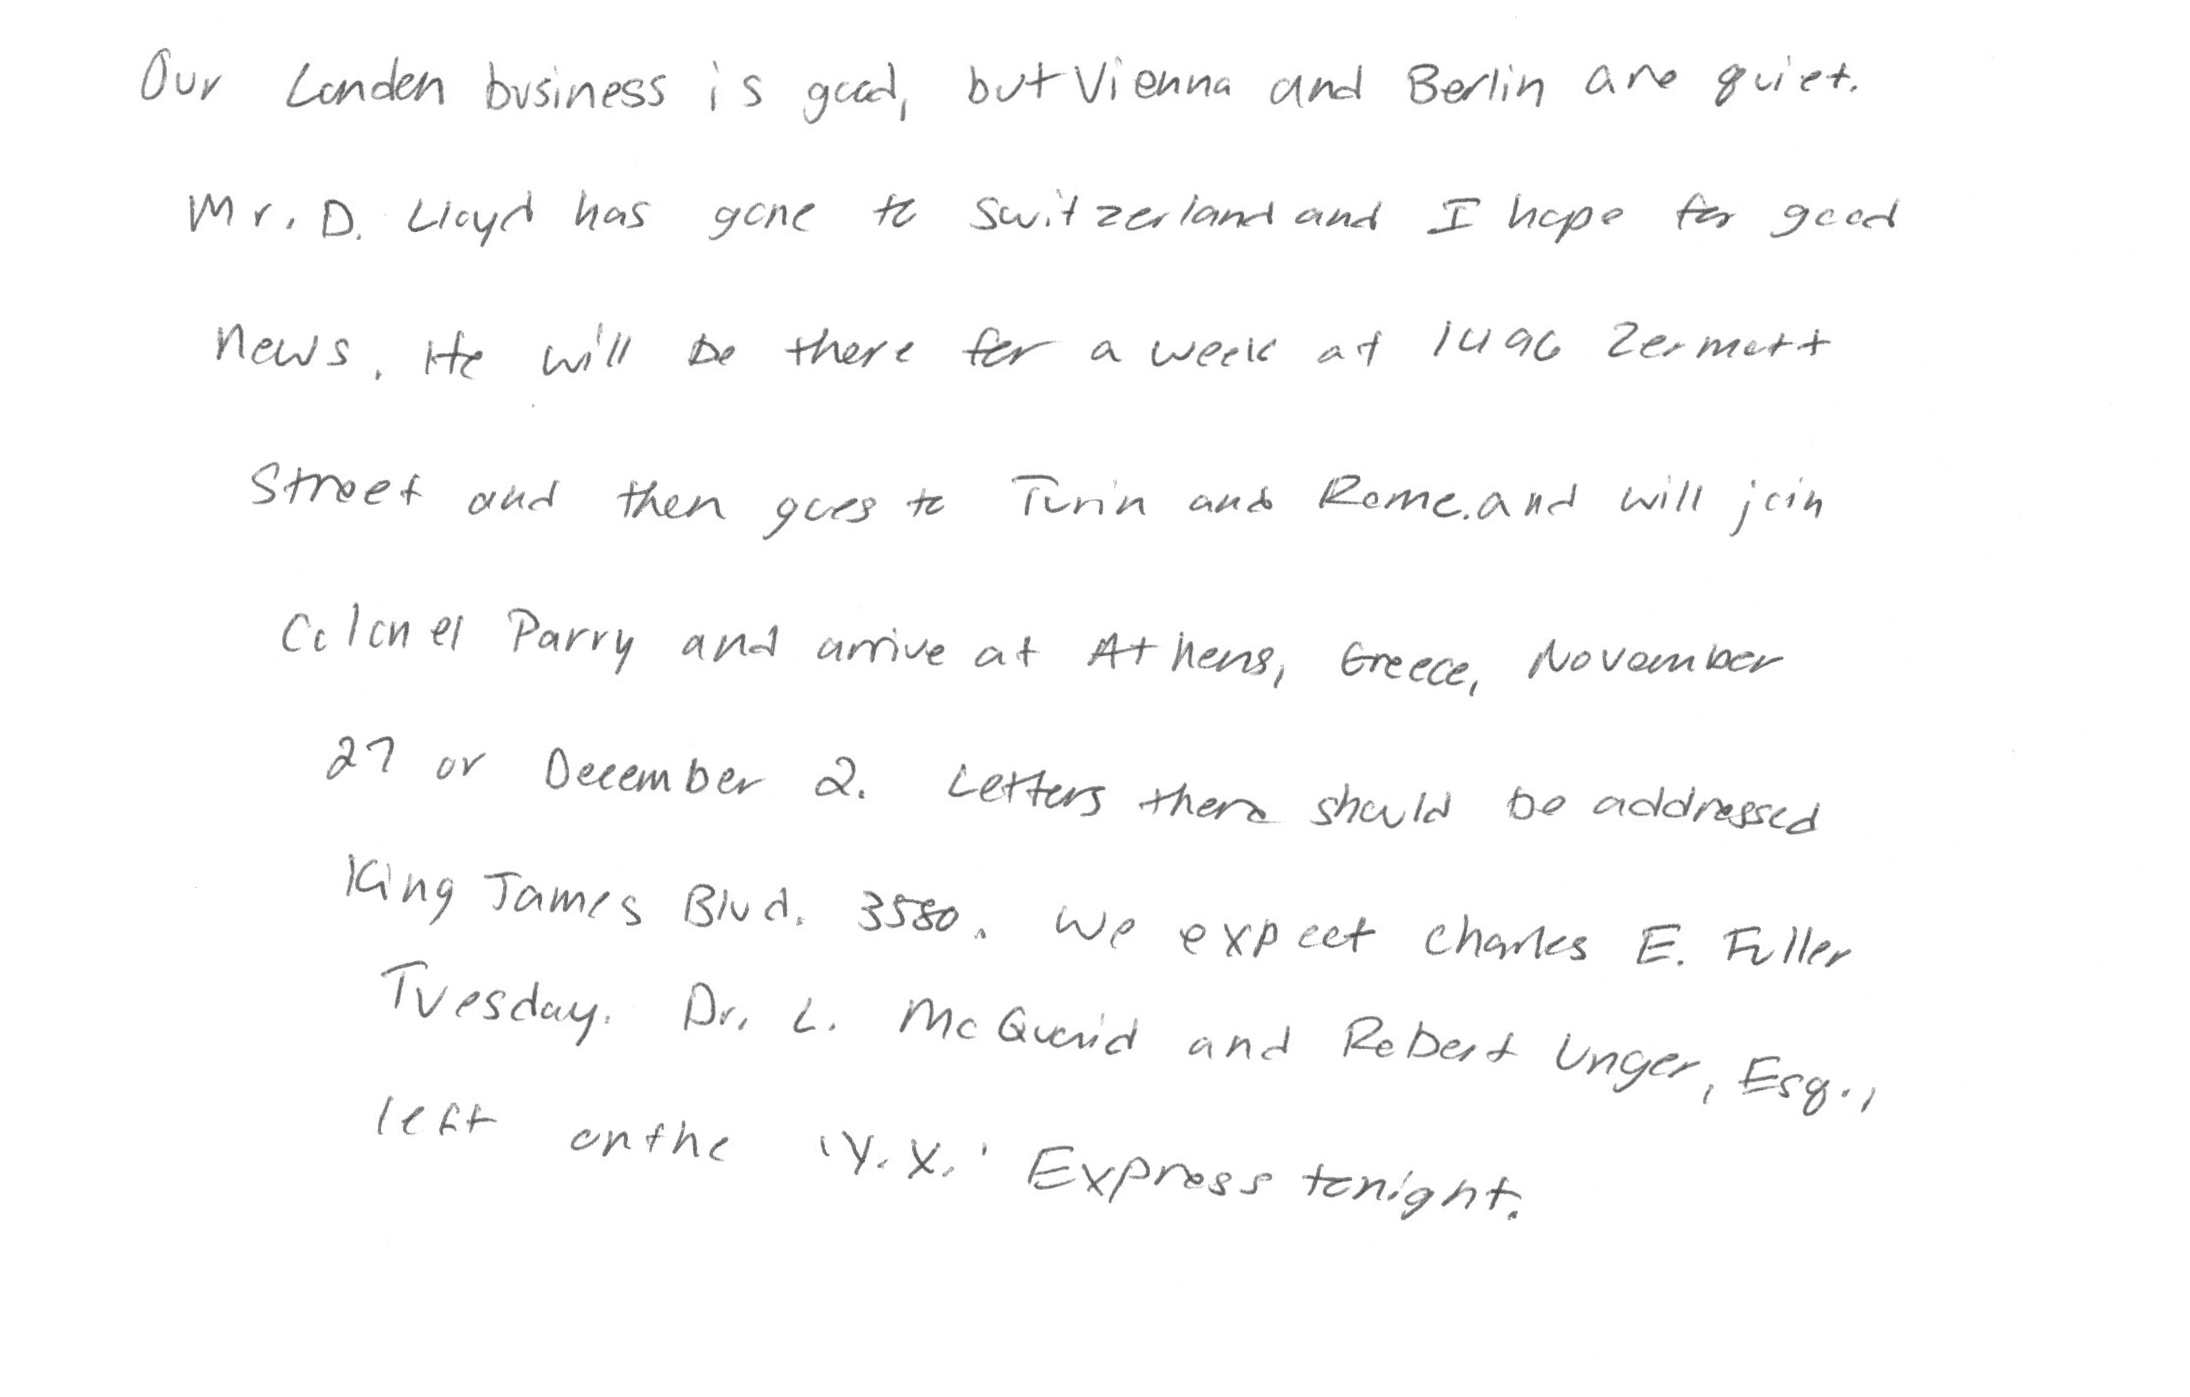 Our London business is good, but Vienna and Berlin are quiet.
Mr. D. Lloyd has gone to Switzerland and I hope for good
news. He will be there for a week at 1496 Zermott
Street and then goes to Turin and Rome. and will join
Colonel Parry and arrive at Athens, Greece, November
27 or December 2. Letters there should be addressed
King James Blvd. 3580. We expect Charles E. Fuller
Tuesday. Dr. L. McQuaid and Robert Unger, Esq.,
left on the 'Y.X.' Express tonight.